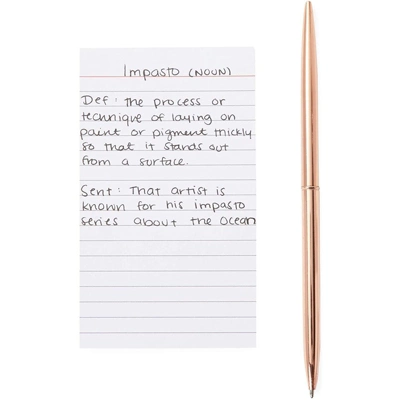 Impasto (noun)
Def: The process or
technique of laying on
paint or pigment thickly
so that it stands out
from a surface.
Sent: That artist is
known for his impasto
series about the ocean